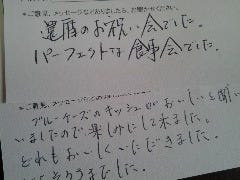 ※ご意見、メッセージなどありましたら、お聞かせください。
還暦のお祝い会でした。
パーフェクトな食事会でした。
※ご意見、メッセージなど
ブルーチーズのキッシュがおいしいと聞
いましたので楽しみにして来ました。
どれもおいしくいただきました。